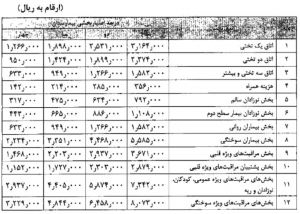 (ارقام به ریال)
درجه اعتباربخشی بیمارستان
یک دو سه چهار
۱ اتاق یک تختی ۳,۱۶۴,۰۰۰ ۲,۵۳۱,۰۰۰ ۱,۸۹۸,۰۰۰ ۱,۲۶۶,۰۰۰
۲ اتاق دو تختی ۲,۳۷۴,۰۰۰ ۱,۸۹۹,۰۰۰ ۱,۴۲۴,۰۰۰ ۹۵۰,۰۰۰
۳ اتاق سه تختی و بیشتر ۱,۵۸۲,۰۰۰ ۱,۲۶۶,۰۰۰ ۹۴۹,۰۰۰ ۶۳۳,۰۰۰
۴ هزینه همراه ۳۵۶,۰۰۰ ۲۸۵,۰۰۰ ۲۱۴,۰۰۰ ۱۴۲,۰۰۰
۵ بخش نوزادان سالم ۷۹۲,۰۰۰ ۶۳۴,۰۰۰ ۴۷۵,۰۰۰ ۳۱۷,۰۰۰
۶ بخش نوزادان بیمار سطح دوم ۱,۱۰۸,۰۰۰ ۸۸۶,۰۰۰ ۶۶۵,۰۰۰ ۴۴۳,۰۰۰
۷ بخش بیماران روانی ۱,۵۸۲,۰۰۰ ۱,۲۶۶,۰۰۰ ۹۴۹,۰۰۰ ۶۳۳,۰۰۰
۸ بخش بیماران سوختگی ۵,۵۸۵,۰۰۰ ۴,۴۶۸,۰۰۰ ۳,۳۵۱,۰۰۰ ۲,۲۳۴,۰۰۰
۹ بخش مراقبت‌های ویژه قلبی ۳,۶۷۱,۰۰۰ ۲,۹۳۷,۰۰۰ ۲,۲۰۳,۰۰۰ ۱,۴۶۸,۰۰۰
۱۰ بخش پشتیبان مراقبت‌های ویژه قلبی ۲,۸۷۹,۰۰۰ ۲,۳۰۳,۰۰۰ ۱,۷۲۷,۰۰۰ ۱,۱۵۲,۰۰۰
۱۱ بخش‌های مراقبت‌های ویژه عمومی، کودکان، نوزادان و ریه ۷,۳۴۲,۰۰۰ ۵,۸۷۴,۰۰۰ ۴,۴۰۵,۰۰۰ ۲,۹۳۷,۰۰۰
۱۲ بخش‌های مراقبت‌های ویژه سوختگی ۸,۰۷۳,۰۰۰ ۶,۴۵۸,۰۰۰ ۴,۸۴۴,۰۰۰ ۳,۲۲۹,۰۰۰